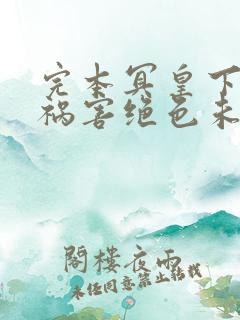 完本冥皇下
祸害绝色未
閣樓夜雨
未经同意禁止转载